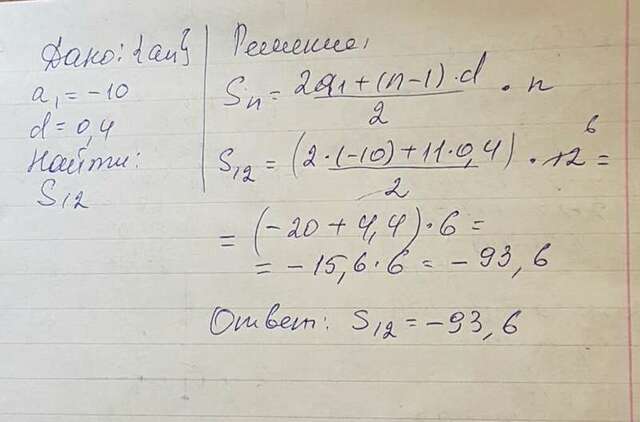 Дано: {an}
a₁ = -10
d = 0,4
Найти:
S₁₂
Решение,
Sₙ = (2a₁ + (n-1)·d)/2 · n
S₁₂ = (2·(-10) + 11·0,4)/2 · 12 6 =
= (-20 + 4,4)·6 =
= -15,6·6 = -93,6
Ответ: S₁₂ = -93,6